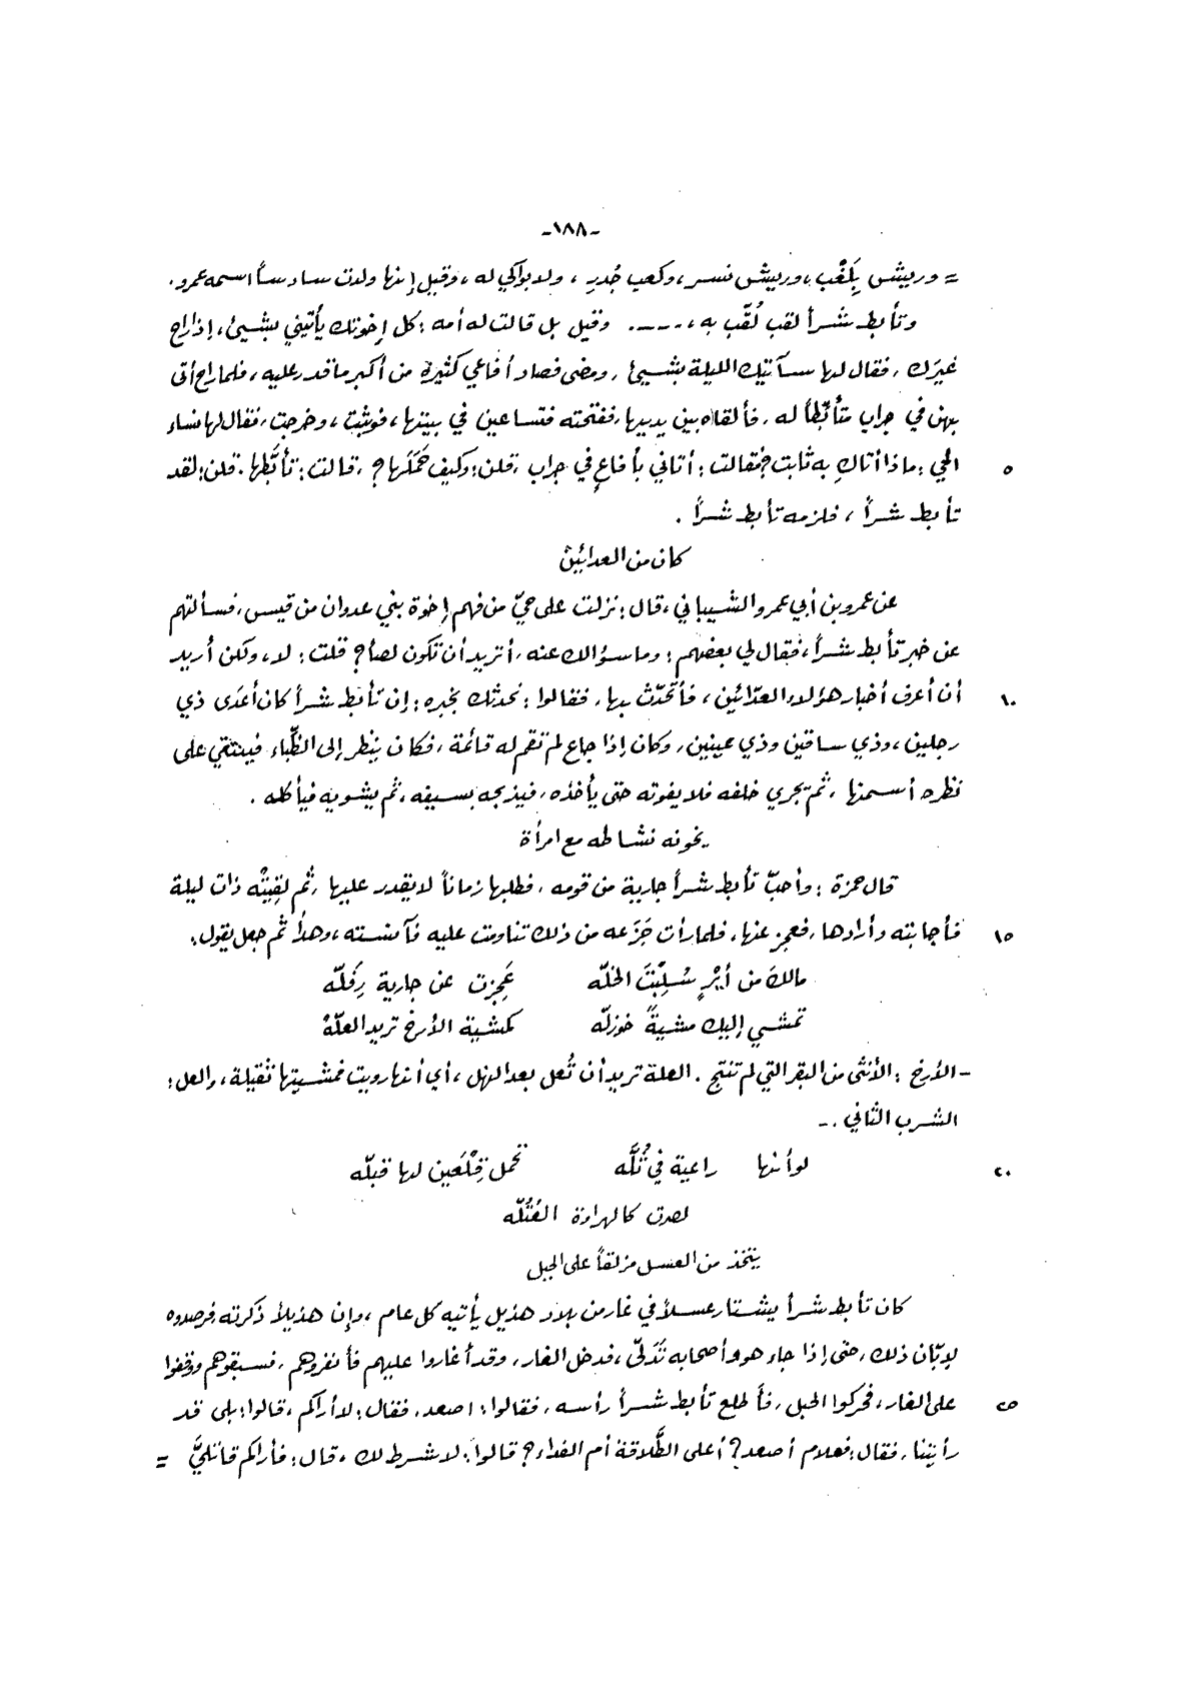 -١٨٨-
= وريش بِلَغْب، وريش نسر، وكعب جُدر، ولا بواكي له، وقيل إنها ولدت سادساً اسمه عمرو.
وتأبط شراً لقب لُقّب به، ----. وقيل بل قالت له أمه: كل إخوتك يأتيني بشيئ، إذا راح
غيرَك، فقال لها سآتيك الليلة بشيئ، ومضى فصاد أفاعي كثيرة من أكبر ما قدر عليه، فلما راح أتى
بهن في جراب متأبّطاً له، فألقاه بين يديها، ففتحته فتساعين في بيتها، فوثبت، وخرجت، فقال لها نساء
الحي: ماذا أتاكِ به ثابت؟ فقالت: أتاني بأفاعٍ في جراب، قلن: وكيف حَمَلَها؟، قالت: تأبَّطها. قلن: لقد
٥
تأبط شراً، فلزمه تأبط شراً.
كان من العدائين
عن عمرو بن أبي عمرو الشيباني، قال: نزلت على حيّ من فهم إخوة بني عدوان من قيس، فسألتهم
عن خبر تأبط شراً، فقال لي بعضهم: وما سؤالك عنه، أتريد أن تكون لصاً؟ قلت: لا، ولكن أريد
أن أعرف أخبار هؤلاء العدّائين، فأتحدّث بها، فقالوا: نحدثك بخبره: إن تأبط شراً كان أعدَى ذي
١٠
رجلين، وذي ساقين وذي عينين، وكان إذا جاع لم تقم له قائمة، فكان ينظر إلى الظّباء فينتقي على
نظره أسمنها، ثم يجري خلفه فلا يفوته حتى يأخذه، فيذبحه بسيفه، ثم يشويه فيأكله.
يخونه نشاطه مع امرأة
قال حمزة: وأحبّ تأبط شراً جارية من قومه، فطلبها زماناً لا يقدر عليها، ثم لقِيتْه ذات ليلة
فأجابته وأرادها، فعجز عنها، فلما رأت جَزَعه من ذلك تناومت عليه فآنسته، وهدأ ثم جعل يقول:
١٥
مالكَ من أيْرٍ سُلِبْتَ الخلّه عَجِزت عن جارية رِفَلّه
تمشي إليك مشيةً خوزلّه كمشية الأرخ تريد العلّهْ
- الأرخ: الأنثى من البقر التي لم تنتج. العلة تريد أن تُعل بعد النهل، أي أنها رويت فمشيتها ثقيلة، والعل:
الشرب الثاني. -
لو أنها راعية في ثُلَّه تحمل قِلْعَين لها قبلّه
٢٠
لصرت كالهراوة العُتُلّه
يتخذ من العسل مزلقاً على الجبل
كان تأبط شراً يشتار عسلاً في غار من بلاد هذيل يأتيه كل عام، وإن هذيلاً ذكرته فرصدوه
لإبّان ذلك، حتى إذا جاء هو وأصحابه تَدَلّى، فدخل الغار، وقد أغاروا عليهم فأنفروهم، فسبقوهم ووقفوا
على الغار، فحركوا الحبل، فأطلع تأبط شراً رأسه، فقالوا: اصعد، فقال: لا أراكم، قالوا: بلى قد
٢٥
رأيتنا، فقال: فعلام أصعد؟ أعلى الطَّلاقة أم الفداء؟ قالوا: لا شرط لك، قال: فأراكم قاتليَّ =